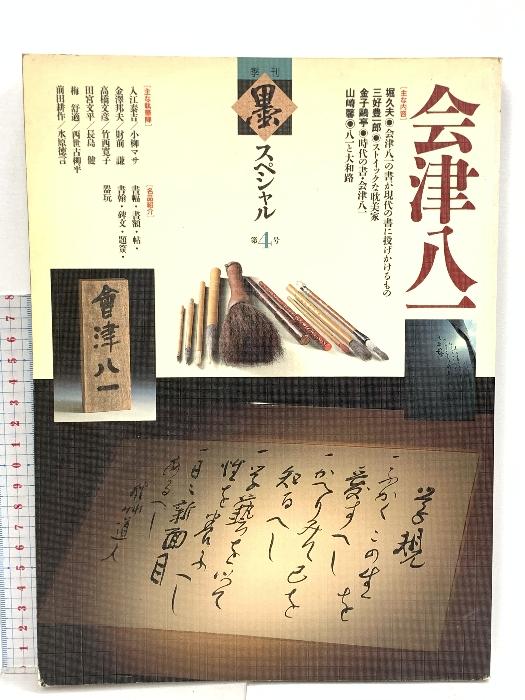 会津八一
季刊
墨
スペシャル
第4号
[主な内容]
堀久夫●会津八一の書が現代の書に投げかけるもの
三好豊一郎●ストイックな耽美家
金子鷗亭●時代の書・会津八一
山崎馨●八一と大和路
[主な執筆陣]
入江泰吉/小柳マサ
金澤邦夫/財前 謙
高橋文彦/竹西寛子
田宮文平/長島 健
梅 舒適/西世古柳平
前田耕作/永原徳言
[名品紹介]
書幅・書額・帖・
書簡・碑文・題簽・
器玩
會津八一
学規
一ふかくこの生を
愛すへし
一かへりみて己を
知るへし
一学藝を以て
性を養ふへし
一日々新面目
あるへし
秋艸道人